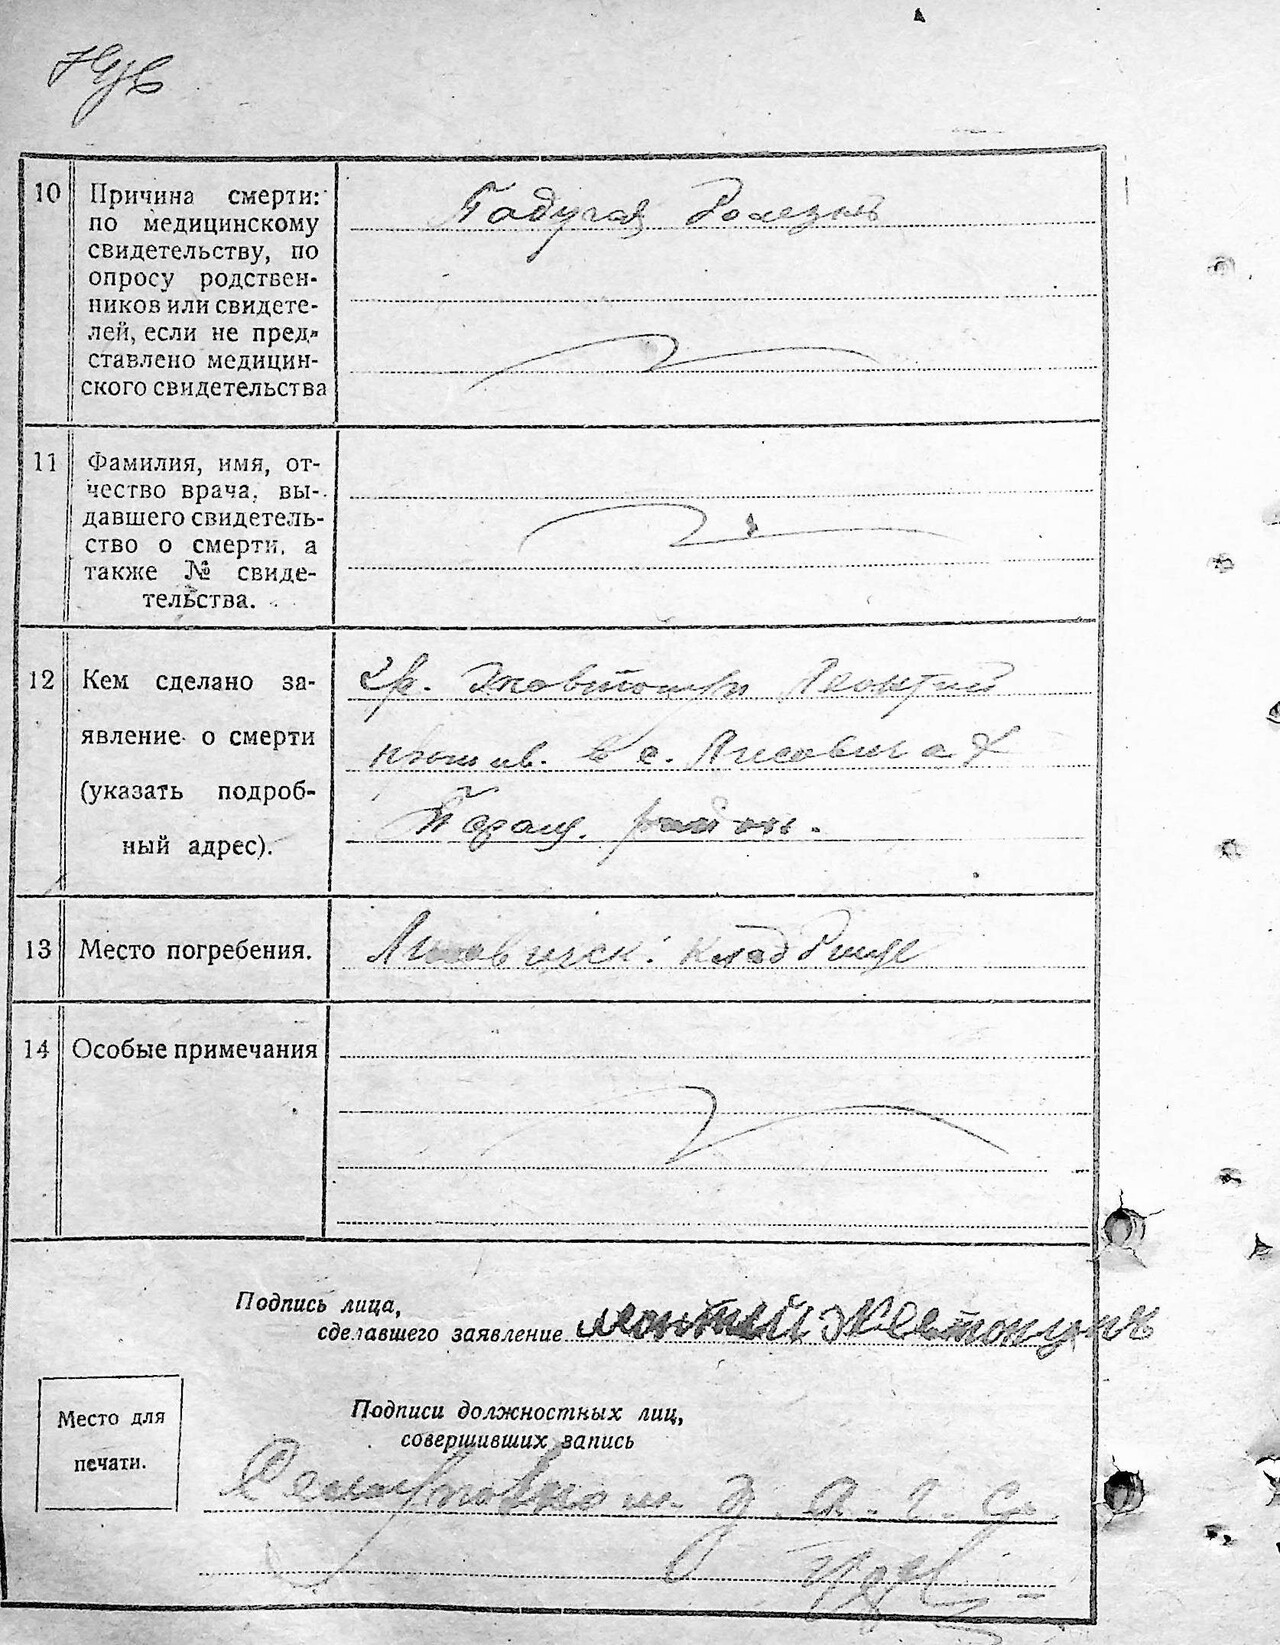 10 Причина смерти:
по медицинскому
свидетельству, по
опросу родствен-
ников или свидете-
лей, если не пред-
ставлено медицин-
ского свидетельства
Падучая болезнь
11 Фамилия, имя, от-
чество врача, вы-
давшего свидетель-
ство о смерти, а
также № свиде-
тельства.
12 Кем сделано за-
явление о смерти
(указать подроб-
ный адрес).
гр. Жовтоцуп Леонтий
в с. Лисовичах
район.
13 Место погребения.
кладбище
14 Особые примечания
Подпись лица,
сделавшего заявление
Подписи должностных лиц,
совершивших запись
Место для
печати.